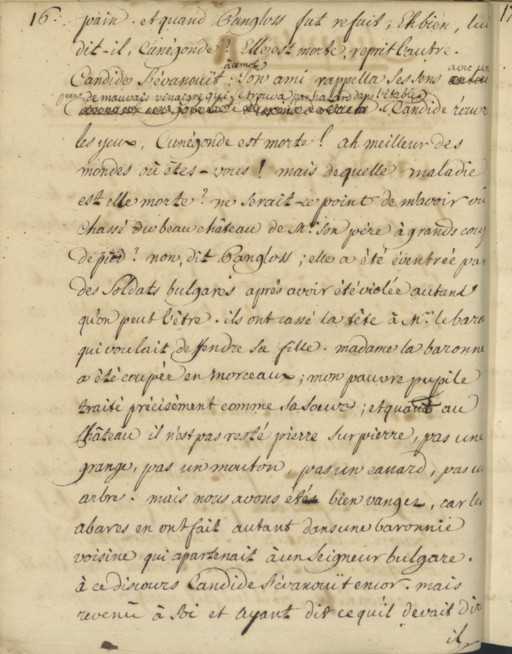 16.
pain. et quand Pangloss fut refait, Eh bien, lui
dit-il, Cunégonde! Elle est morte, reprit l'autre.
Candide s'évanouit à ce mot; son ami rappella ses sens avec un peu
de mauvais vinaigre qui se trouva par hazard dans l'étable. Candide rouvre
les yeux, Cunégonde est morte! ah meilleur des
mondes où êtes-vous! mais de quelle maladie
est elle morte? ne serait-ce point de m'avoir vu
chassé du beau château de Mr. son père à grands coups
de pied? non, dit Pangloss; elle a été éventrée par
des soldats bulgares après avoir été violée autant
qu'on peut l'être. ils ont cassé la tête à Mr. le baron
qui voulait deffendre sa fille. madame la baronne
a été coupée en morceaux; mon pauvre pupile
traité précisément comme sa soeur; et quand au
château il n'est pas resté pierre sur pierre, pas une
grange, pas un mouton, pas un canard, pas un
arbre. mais nous avons été bien vangez, car les
abares en ont fait autant dans une baronnie
voisine qui apartenait à un seigneur bulgare.
à ce discours Candide s'évanouït encor. mais
revenu à soi et ayant dit ce qu'il devait dire
il